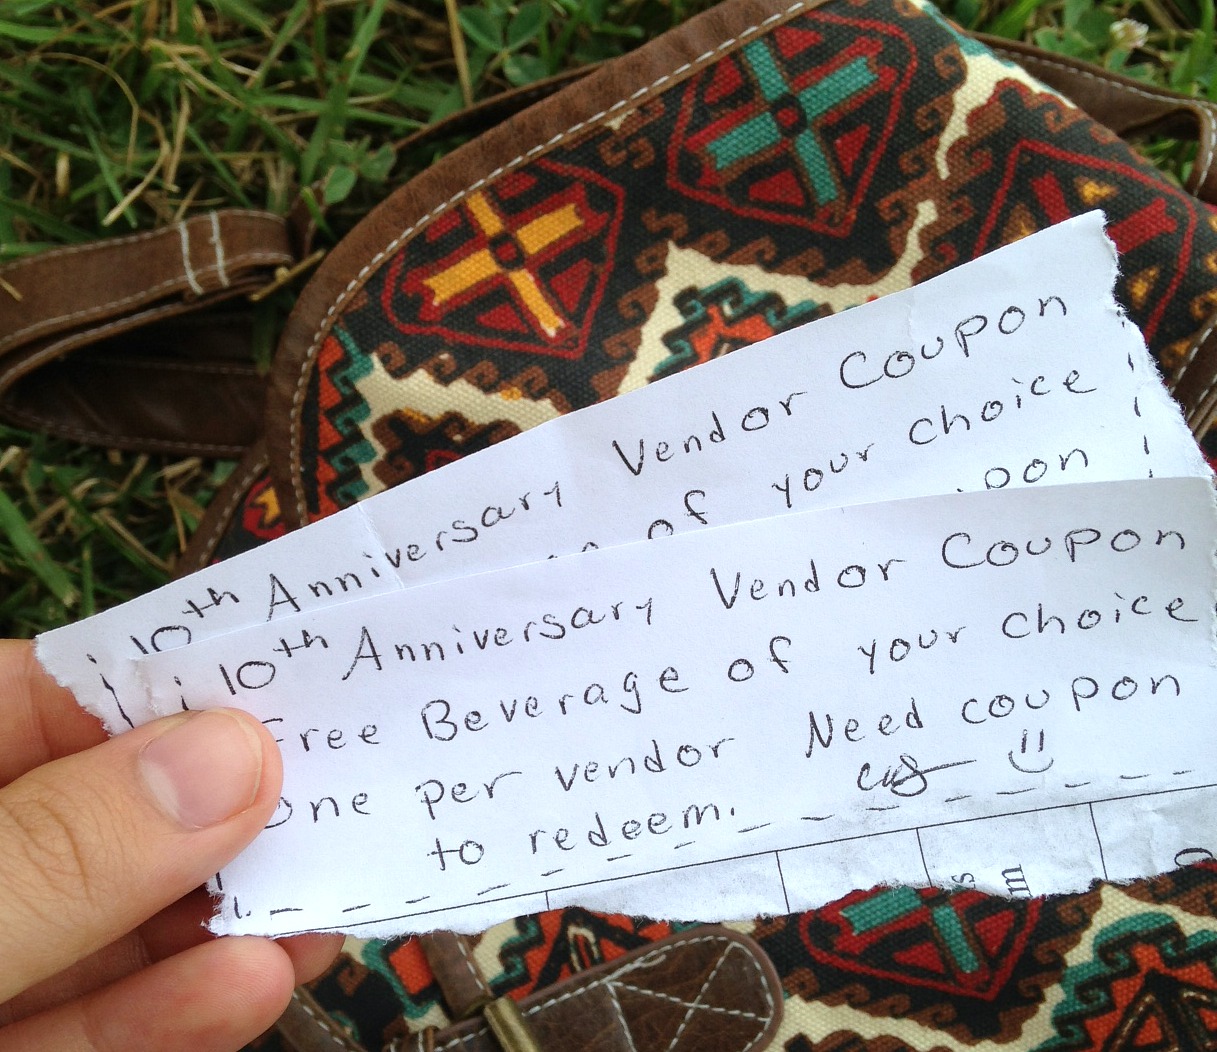 10th Anniversary Vendor Coupon
of your choice
pon
10th Anniversary Vendor Coupon
Free Beverage of your choice
One per vendor Need coupon
to redeem.